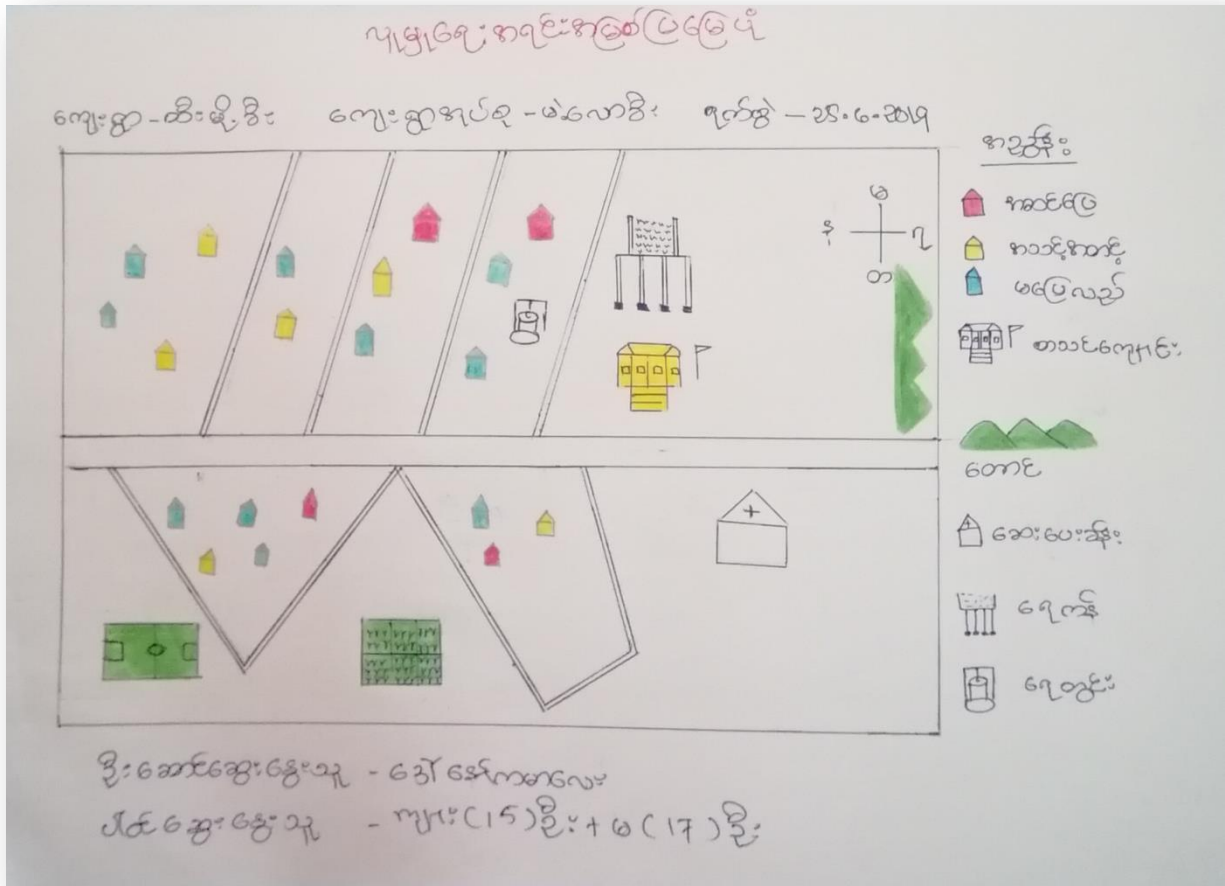 လူမှုရေးအရင်းအမြစ်ပြမြေပုံ
ကျေးရွာ - ဆီးမို့ဒီး ကျေးရွာအုပ်စု - မဲလောဒီး ရက်စွဲ - 25.6.2019
အညွှန်း
အဆင်ပြေ
အသင့်အတင့်
မပြေလည်
စာသင်ကျောင်း
တောင်
ဆေးပေးခန်း
ရေကန်
ရေတွင်း
မ
န
ရ
တ
ဦးဆောင်ဆွေးနွေးသူ - ဒေါ်နော်ကမာလေး
ပါဝင်ဆွေးနွေးသူ - ကျား(15)ဦး + မ(17)ဦး